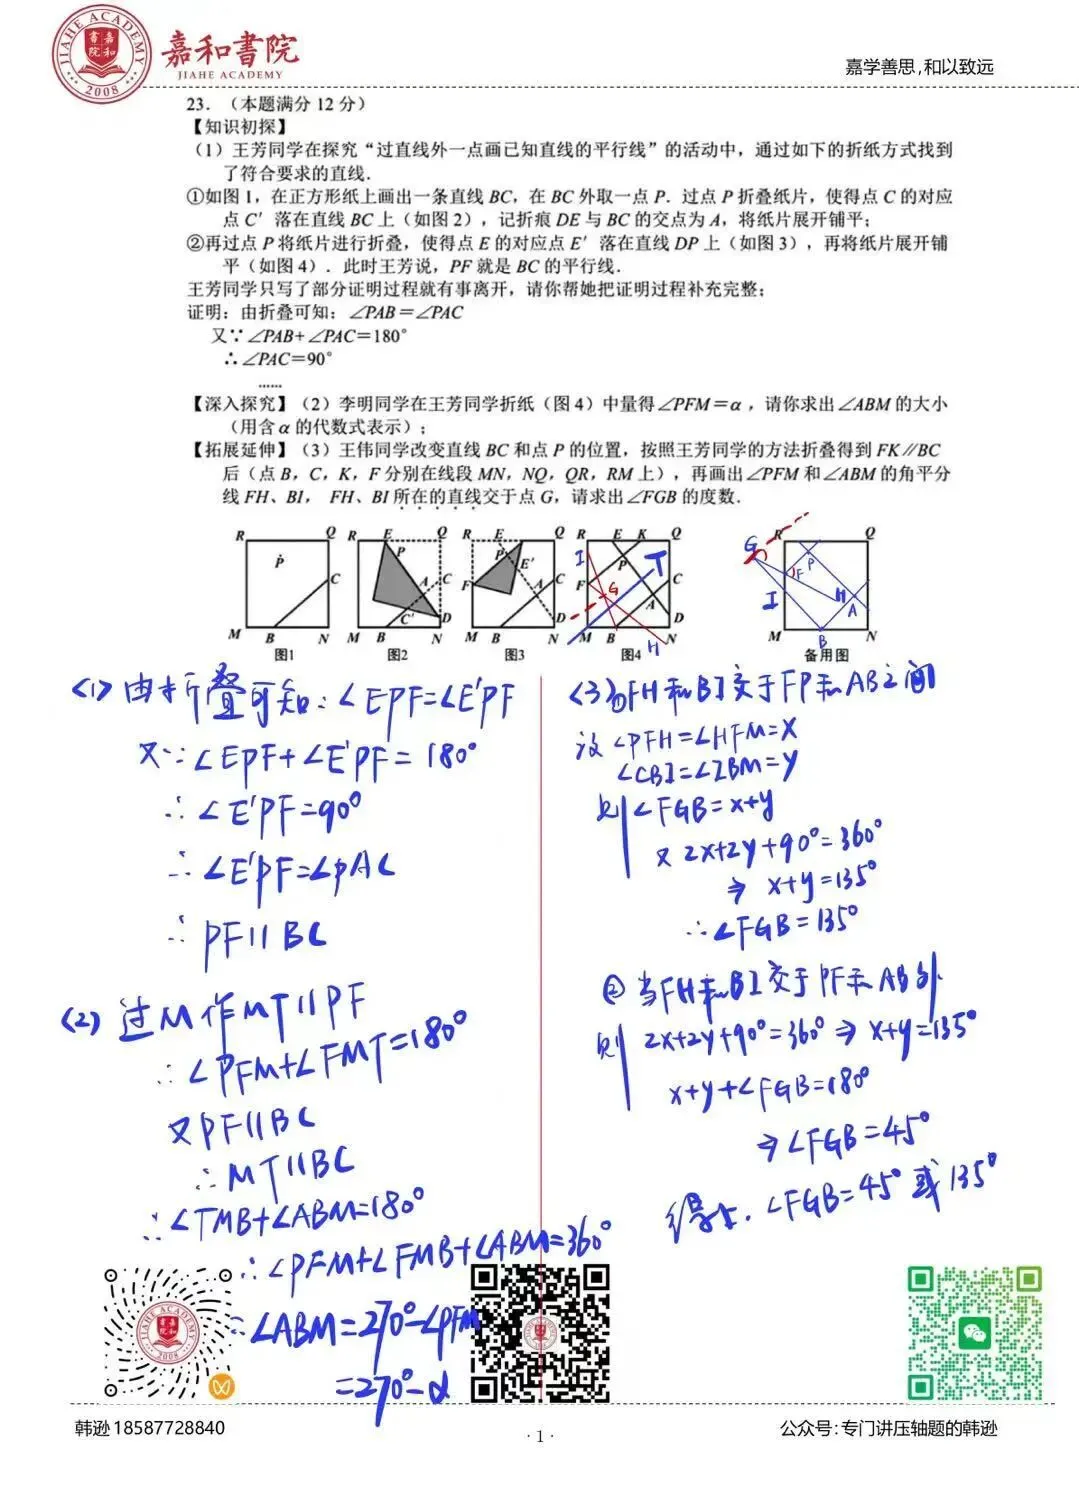 JIAHE ACADEMY
書院 嘉和
2008
嘉和書院
JIAHE ACADEMY
嘉学善思,和以致远
23．（本题满分 12 分）
【知识初探】
（1）王芳同学在探究“过直线外一点画已知直线的平行线”的活动中，通过如下的折纸方式找到
了符合要求的直线．
①如图 1，在正方形纸上画出一条直线 BC，在 BC 外取一点 P．过点 P 折叠纸片，使得点 C 的对应
点 C′ 落在直线 BC 上（如图 2），记折痕 DE 与 BC 的交点为 A，将纸片展开铺平；
②再过点 P 将纸片进行折叠，使得点 E 的对应点 E′ 落在直线 DP 上（如图 3），再将纸片展开铺
平（如图 4）．此时王芳说，PF 就是 BC 的平行线．
王芳同学只写了部分证明过程就有事离开，请你帮她把证明过程补充完整；
证明：由折叠可知：∠PAB＝∠PAC
又∵∠PAB+∠PAC＝180°
∴∠PAC＝90°
……
【深入探究】（2）李明同学在王芳同学折纸（图 4）中量得∠PFM＝α，请你求出∠ABM 的大小
（用含α的代数式表示）；
【拓展延伸】（3）王伟同学改变直线 BC 和点 P 的位置，按照王芳同学的方法折叠得到 FK∥BC
后（点 B，C，K，F 分别在线段 MN，NQ，QR，RM 上），再画出∠PFM 和∠ABM 的角平分
线 FH、BI， FH、BI 所在的直线交于点 G，请求出∠FGB 的度数．
R Q P C M B N
图1
R E Q P A C C′ D M B N
图2
R E Q P E′ F A C D M B N
图3
R E K Q I P T F G C A D M B N H
图4
R Q G P F I H A M B N
备用图
<1> 由折叠可知：∠EPF=∠E'PF
又∵∠EPF+∠E'PF=180°
∴∠E'PF=90°
∴∠E'PF=∠PAC
∴PF∥BC
<2> 过M作MT∥PF
∴∠PFM+∠FMT=180°
又PF∥BC
∴MT∥BC
∴∠TMB+∠ABM=180°
∴∠PFM+∠FMB+∠ABM=360°
∴∠ABM=270°-∠PFM
=270°-α
<3> ①FH和BI交于FP和AB之间
设∠PFH=∠HFM=x
∠CBI=∠IBM=y
则∠FGB=x+y
又2x+2y+90°=360°
⇒ x+y=135°
∴∠FGB=135°
② 当FH和BI交于PF和AB外
则 2x+2y+90°=360° ⇒ x+y=135°
x+y+∠FGB=180°
⇒∠FGB=45°
综上．∠FGB=45° 或 135°
韩逊 18587728840
· 1 ·
公众号:专门讲压轴题的韩逊